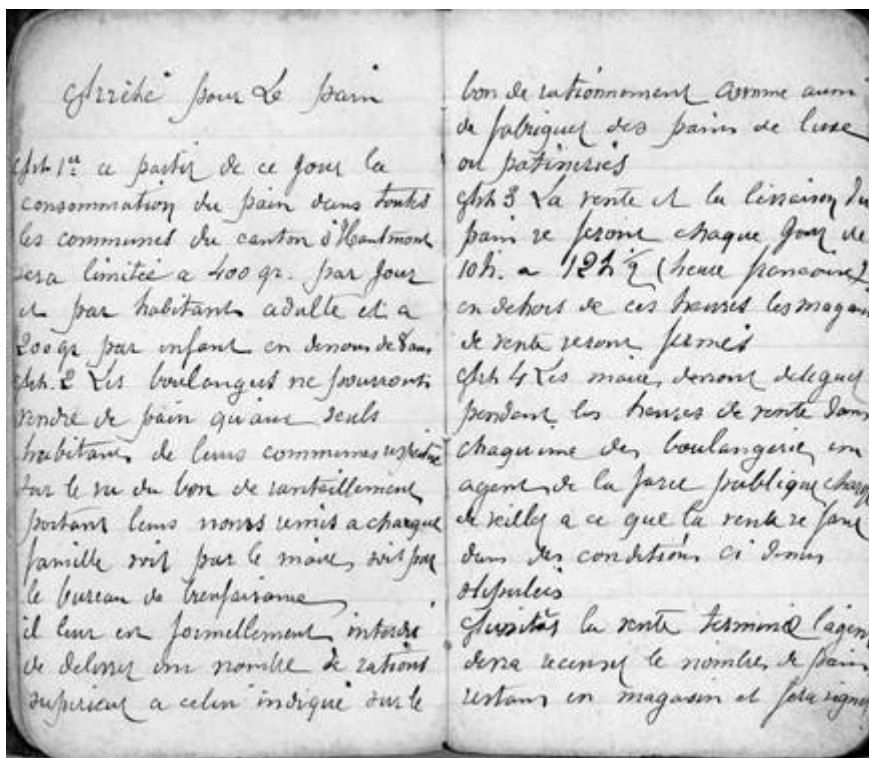 Arrêté pour Le pain
Art 1er a partir de ce jour la
consommation du pain dans toutes
les communes du canton d'Hautmont
sera limitée a 400 gr. par jour
et par habitant adulte et a
200 gr par enfant en dessous de 8 ans
Art. 2 Les boulangers ne pourront
vendre de pain qu'aux seuls
habitants de leurs communes respective
sur le vu du bon de ravitaillement
portant leurs noms remis a chaque
famille soit par le maire, soit par
le bureau de bienfaisance
il leur est formellement interdi
de delivrer un nombre de rations
superieur a celui indiqué sur le
bon de rationnement comme aussi
de fabriquer des pains de luxe
ou patisseries
Art 3 La vente et la livraison du
pain se feront chaque jour de
10 h. a 12 h ½ (heure francaise)
en dehors de ces heures les magasins
de vente seront fermés
Art 4 Les maires devront deleguer
pendant les heures de vente dans
chaqu'une des boulangerie un
agent de la force publique chargé
de veiller a ce que la vente se fasse
dans des conditions ci dessus
stipulées
Aussitôt la vente terminé l'agent
devra recenser le nombre de pains
restans en magasin et fera signer